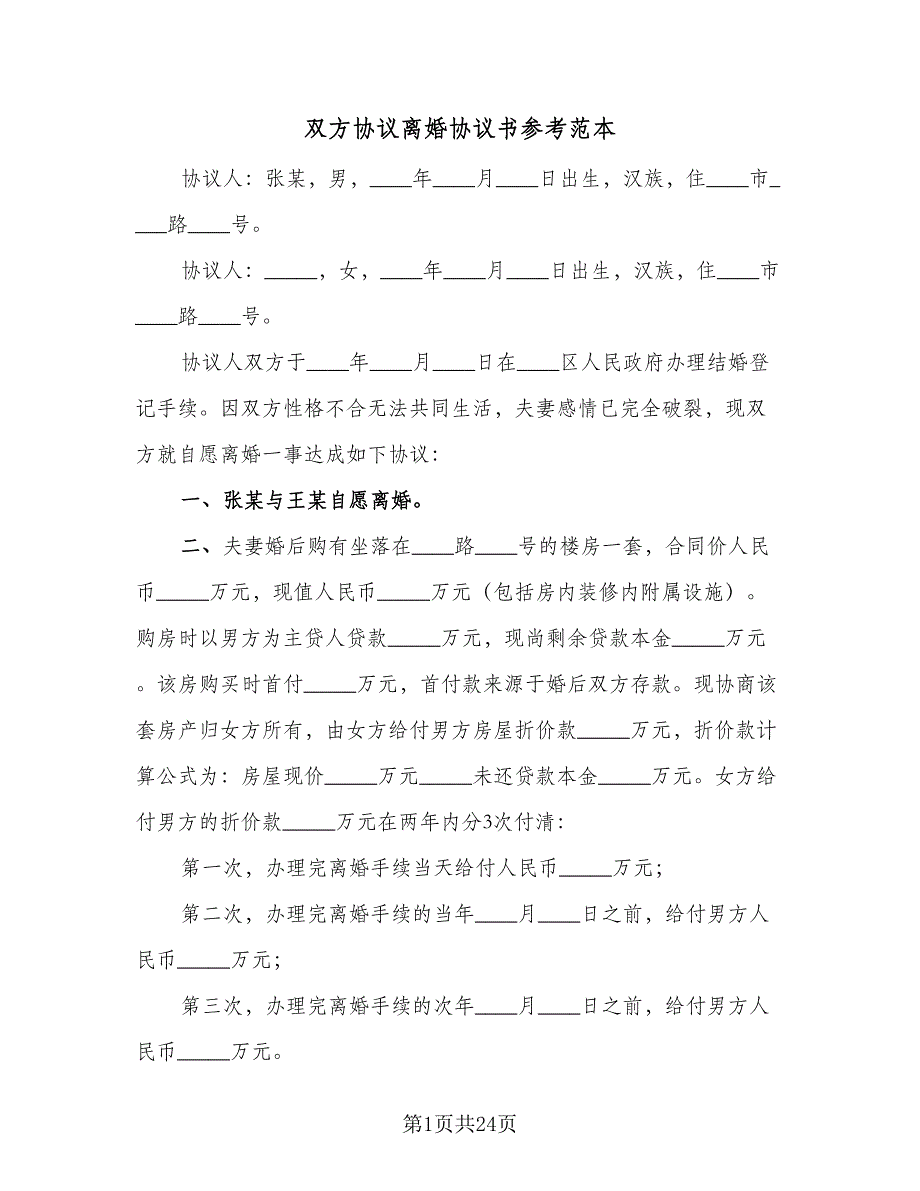 双方协议离婚协议书参考范本
协议人：张某，男，____年____月____日出生，汉族，住____市_
___路____号。
协议人：_____，女，____年____月____日出生，汉族，住____市
____路____号。
协议人双方于____年____月____日在____区人民政府办理结婚登
记手续。因双方性格不合无法共同生活，夫妻感情已完全破裂，现双
方就自愿离婚一事达成如下协议：
一、张某与王某自愿离婚。
二、夫妻婚后购有坐落在____路____号的楼房一套，合同价人民
币_____万元，现值人民币_____万元（包括房内装修内附属设施）。
购房时以男方为主贷人贷款_____万元，现尚剩余贷款本金_____万元
。该房购买时首付_____万元，首付款来源于婚后双方存款。现协商该
套房产归女方所有，由女方给付男方房屋折价款_____万元，折价款计
算公式为：房屋现价_____万元_____未还贷款本金_____万元。女方给
付男方的折价款_____万元在两年内分3次付清：
第一次，办理完离婚手续当天给付人民币_____万元；
第二次，办理完离婚手续的当年____月____日之前，给付男方人
民币_____万元；
第三次，办理完离婚手续的次年____月____日之前，给付男方人
民币_____万元。
第1页共24页